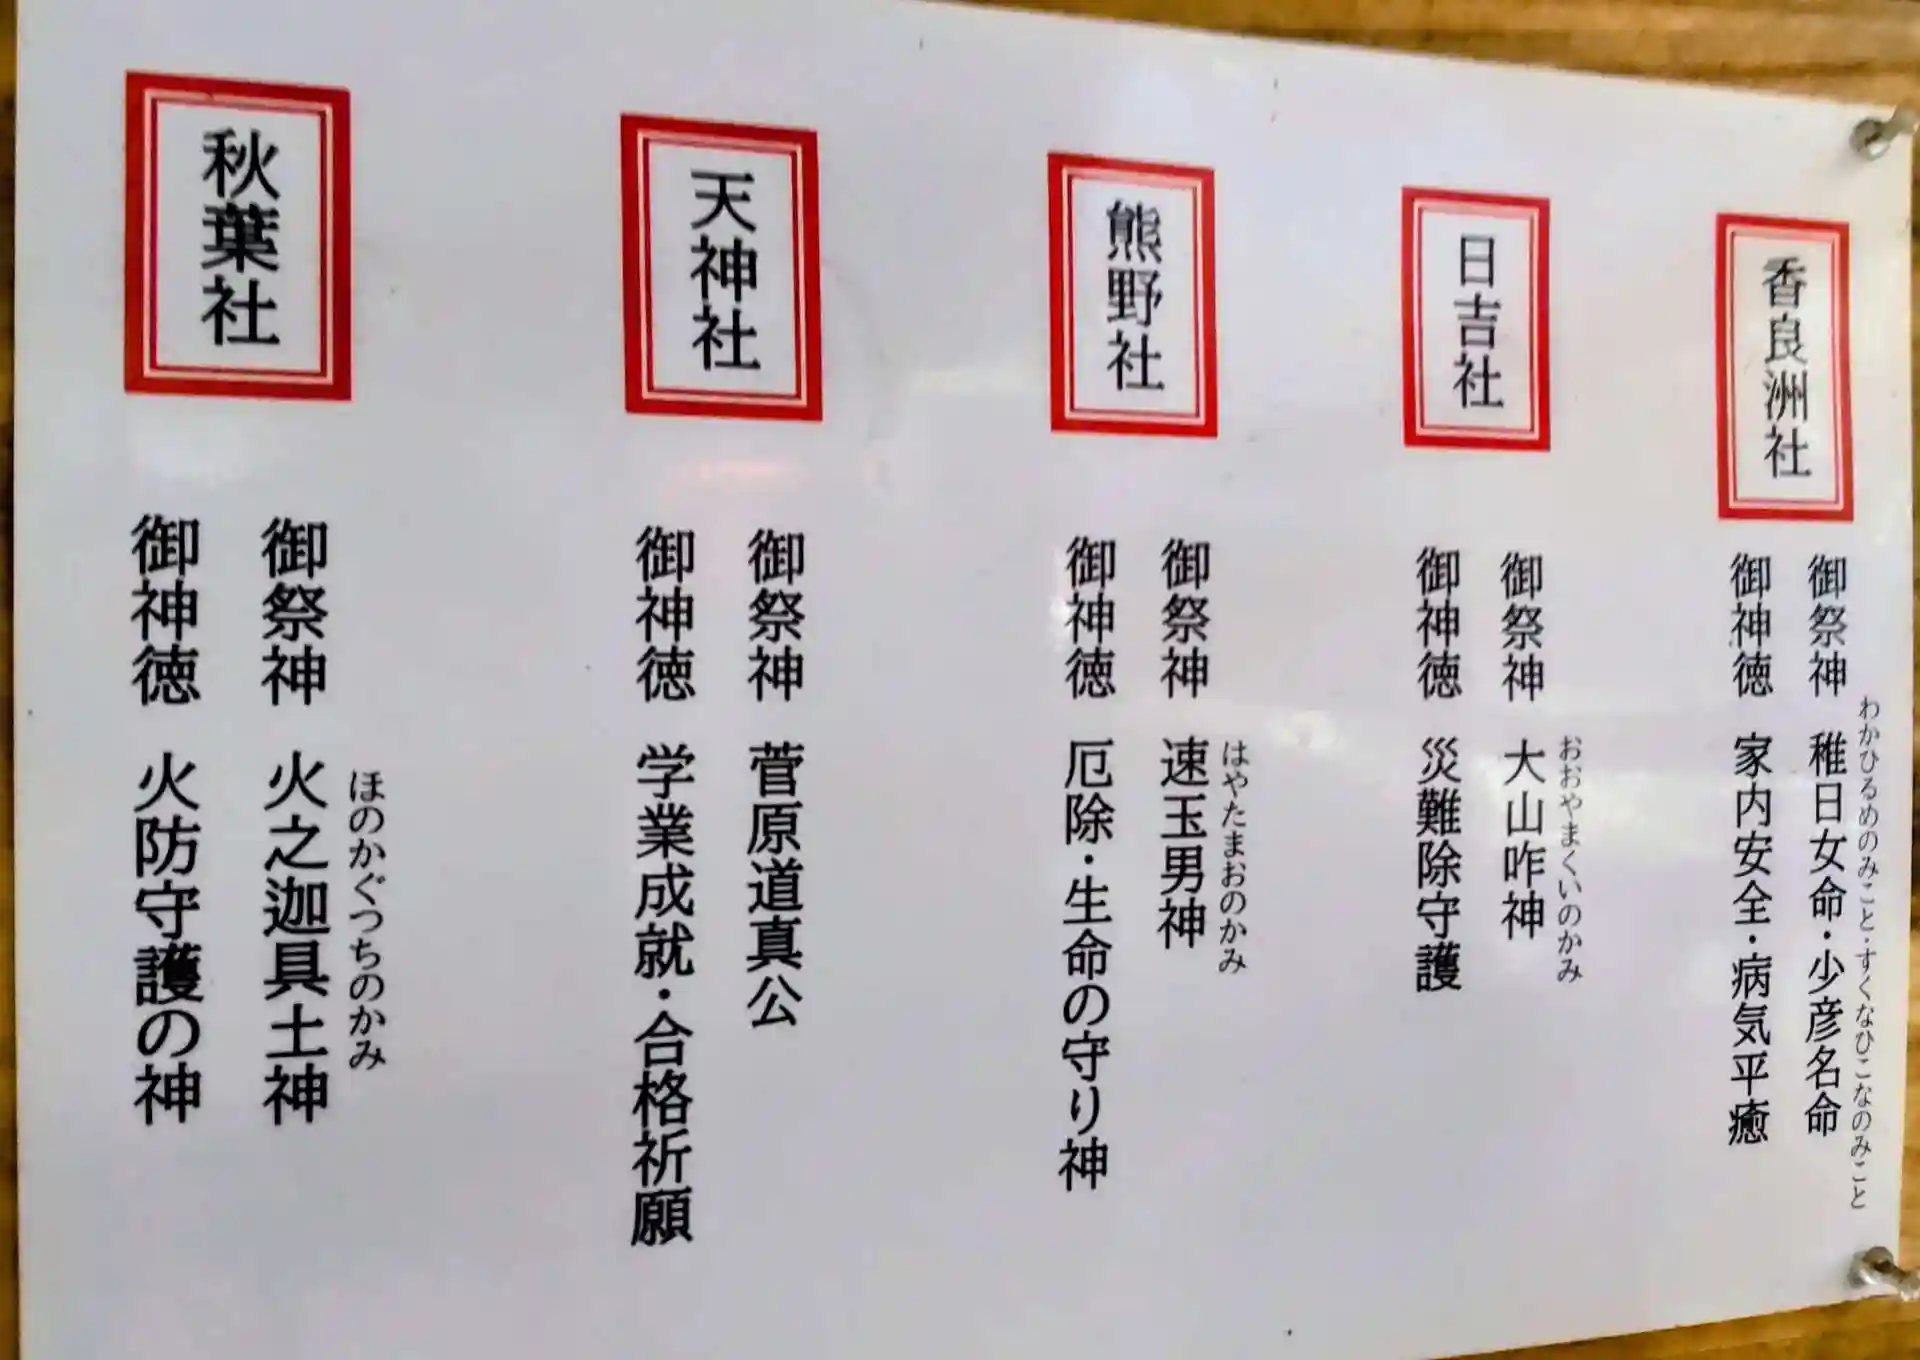 香良洲社
わかひるめのみこと・すくなひこなのみこと
御祭神 稚日女命・少彦名命
御神徳 家内安全・病気平癒
日吉社
おおやまくいのかみ
御祭神 大山咋神
御神徳 災難除守護
熊野社
はやたまおのかみ
御祭神 速玉男神
御神徳 厄除・生命の守り神
天神社
御祭神 菅原道真公
御神徳 学業成就・合格祈願
秋葉社
ほのかぐつちのかみ
御祭神 火之迦具土神
御神徳 火防守護の神